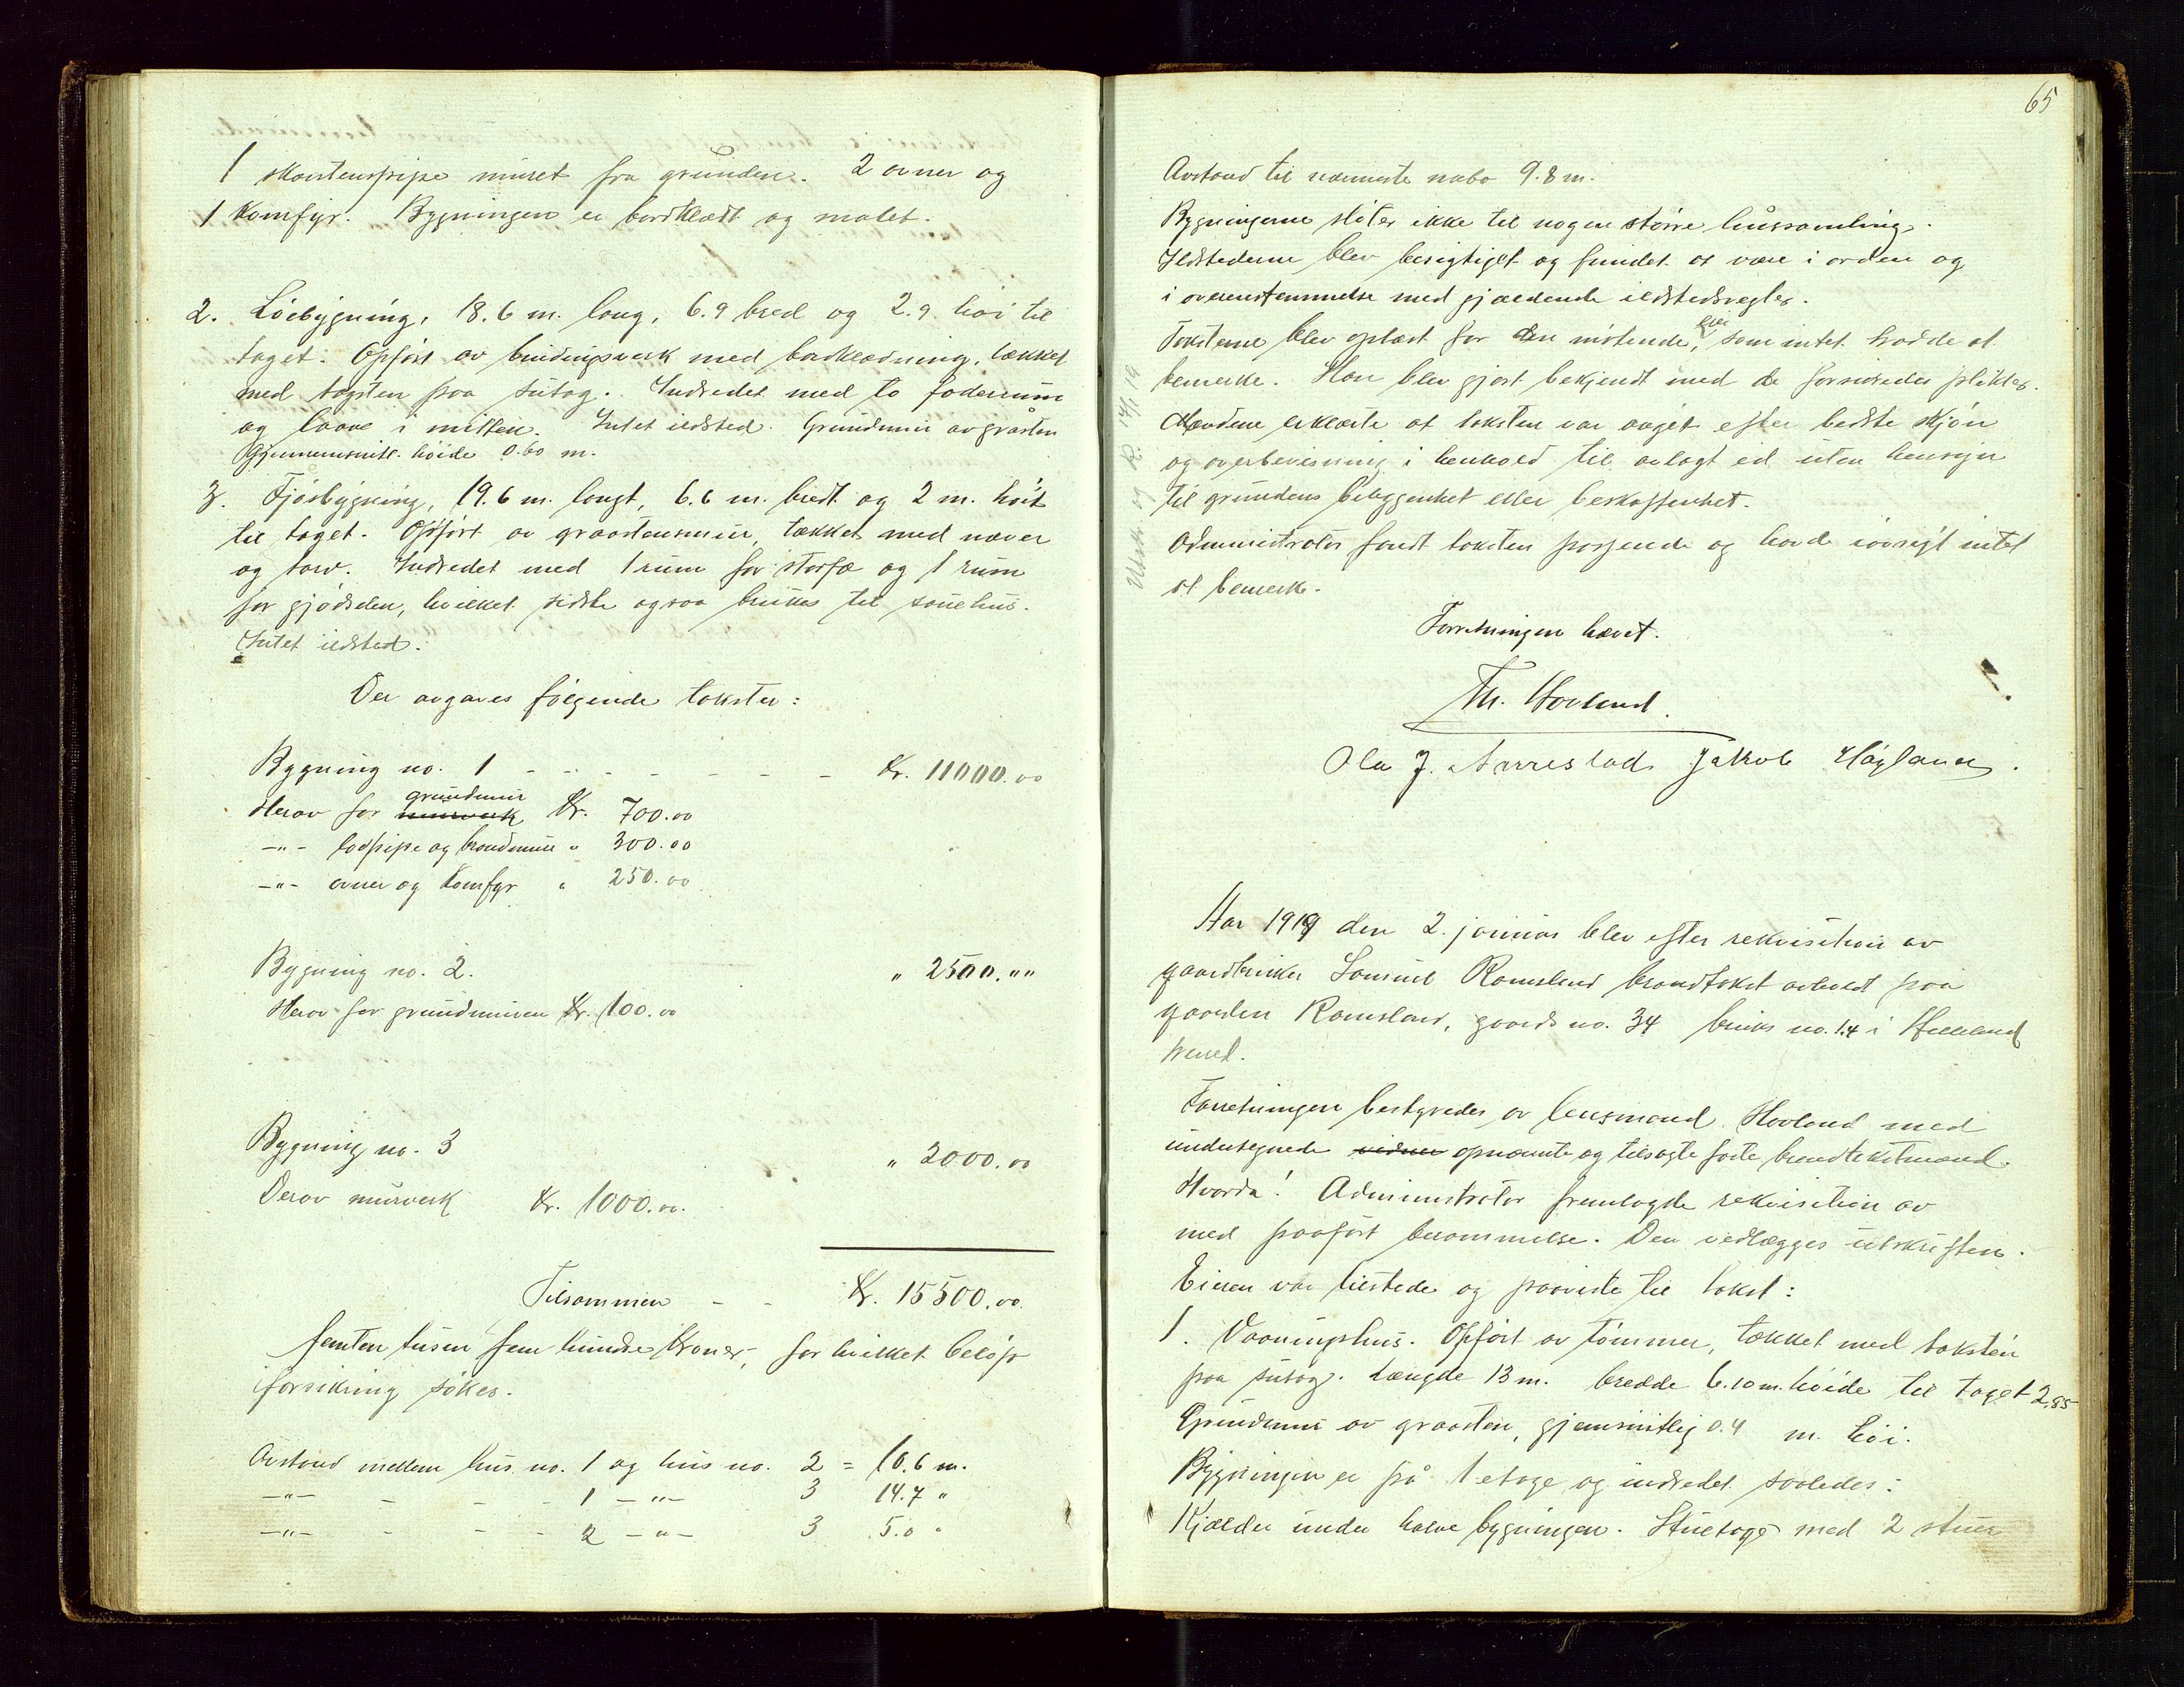 1 skorstenspipe muret fra grunden. 2 ovner og
1 komfyr. Bygningen er bordklædt og malet.
2. Löebygning, 18.6 m. lang, 6.9 bred og 2.9 höi til
taget. Opfört av bindingsverk med bordklædning, tækket
med tagsten paa sutag. Indredet med to foderrum
og laave i mitten. Intet ildsted. Grundmur av gråsten
Gjennemsnitl. höide 0.60 m.
3. Fjösbygning, 19.6 m. langt, 6.6 m. bredt og 2 m. höit
til taget. Opfört av graastensmur, tækket med næver
og torv. Indredet med 1 rum for storfæ og 1 rum
for gjödselen, hvilket sidste ogsaa brukes til sauehus.
Intet ildsted.
Der avgaves fölgende takster:
Bygning no. 1 - - - - - - - Kr. 11000.00
grundmur
Herav for murverk Kr. 700.00
-"- lodpipe og brandmur " 300.00
-"- ovner og Komfyr " 250.00
Bygning no. 2. " 2500.""
Herav for grundmuren Kr. 100.00
Bygning no. 3 " 2000.00
Derav murverk Kr. 1000.00.
Tilsammen - - Kr. 15500.00.
femten tusen fem hundre kroner, for hvilket belöp
forsikring sökes.
Avstand mellem hus no. 1 og hus no. 2 = 10.6 m.
-"- - - - 1 -"- 3 14.7 "
-"- - - - 2 -"- 3 5.0 "
65
Avstand til nærmeste nabo 9.8 m.
Bygningerne stöter ikke til nogen större hussamling.
Ildstederne blev besigtiget og fundet at være i orden og
i overenstemmelse med gjældende ildstedsregler.
eier
Taksterne blev oplæst for den mötende, som intet hadde at
bemerke. Han blev gjort bekjendt med de forsikredes plikter.
Mændene erklærte at taksten var avgit efter bedste skjön
og overbevisning i henhold til avlagt ed uten hensyn
til grundens beliggenhet eller beskaffenhet.
Administrator fandt taksten passende og havde iövrigt intet
at bemerke.
Utsk. og R. 14/1 19
Forretningen hævet.
Th. Hovland.
Ola J. Aarrestad Jakob Högland.
Aar 1919 den 2. januar blev efter rekvisition av
gaardbruker Samuel Ramsland brandtakst avholdt paa
gaarden Ramsland, gaards no. 34 bruks no. 1.4 i Helleland
herred.
Forretningen bestyredes av lensmand Hovland med
undertegnede vidner opnævnte og tilsagte faste brandtakstmænd.
Hvorda! Administrator fremlagde rekvisition av
med paafört berammelse. Den vedlægges utskriften.
Eieren var tilstede og paaviste til takst:
1. Vaaningshus. Opfört av tömmer, tækket med taksten
paa sutag. Længde 13 m. bredde 6.10 m. höide til taget 2,85
Grundmur av graasten, gjemsnitlig 0.4 m. höi.
Bygningen er på 1 etage og indredet saaledes:
Kjælder under halve bygningen. Stuetage med 2 stuer